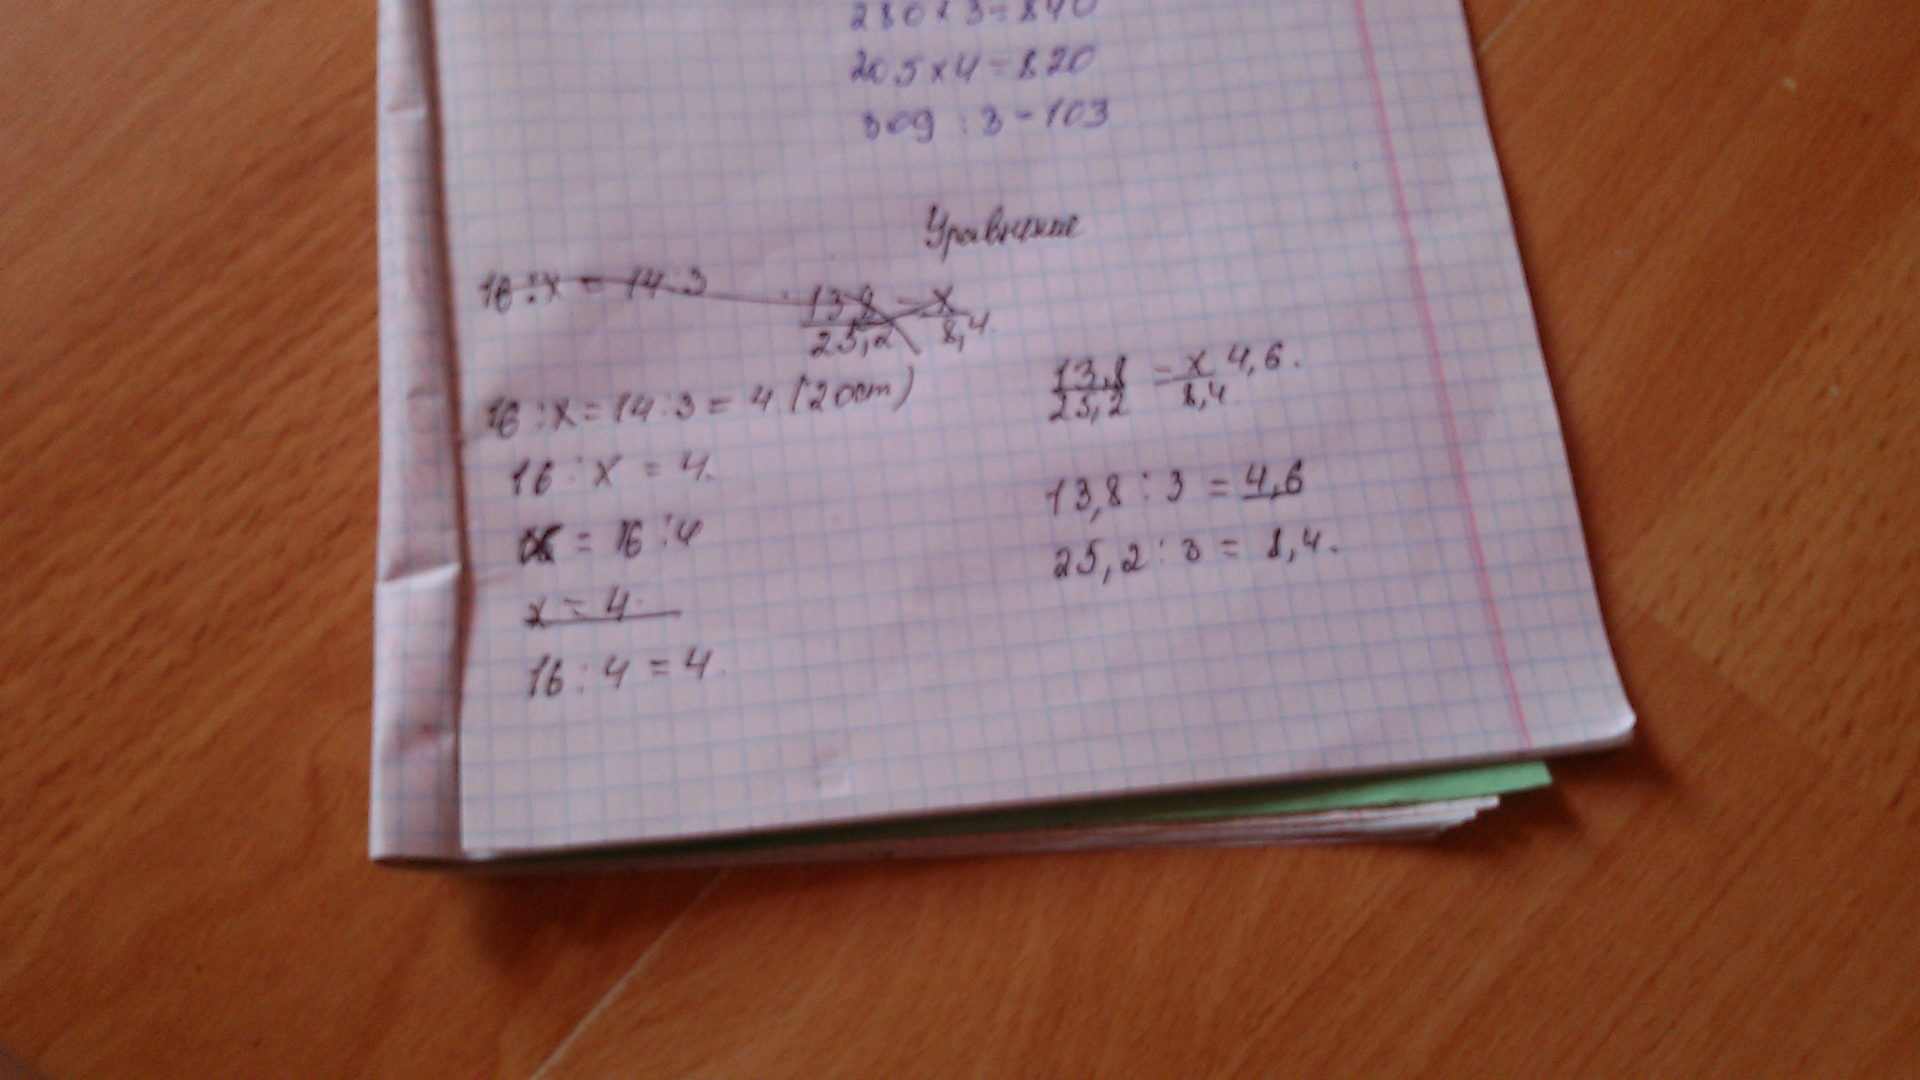 280 × 3 = 840
205 × 4 = 820
309 : 3 = 103
Уравнение
16 : x = 14 : 3
13,8/25,2 = x/8,4
16 : x = 14 : 3 = 4 (2 ост)
13,8/25,2 = x/8,4 4,6.
16 : x = 4.
13,8 : 3 = 4,6
= 16 : 4
25,2 : 3 = 8,4.
x = 4.
16 : 4 = 4.